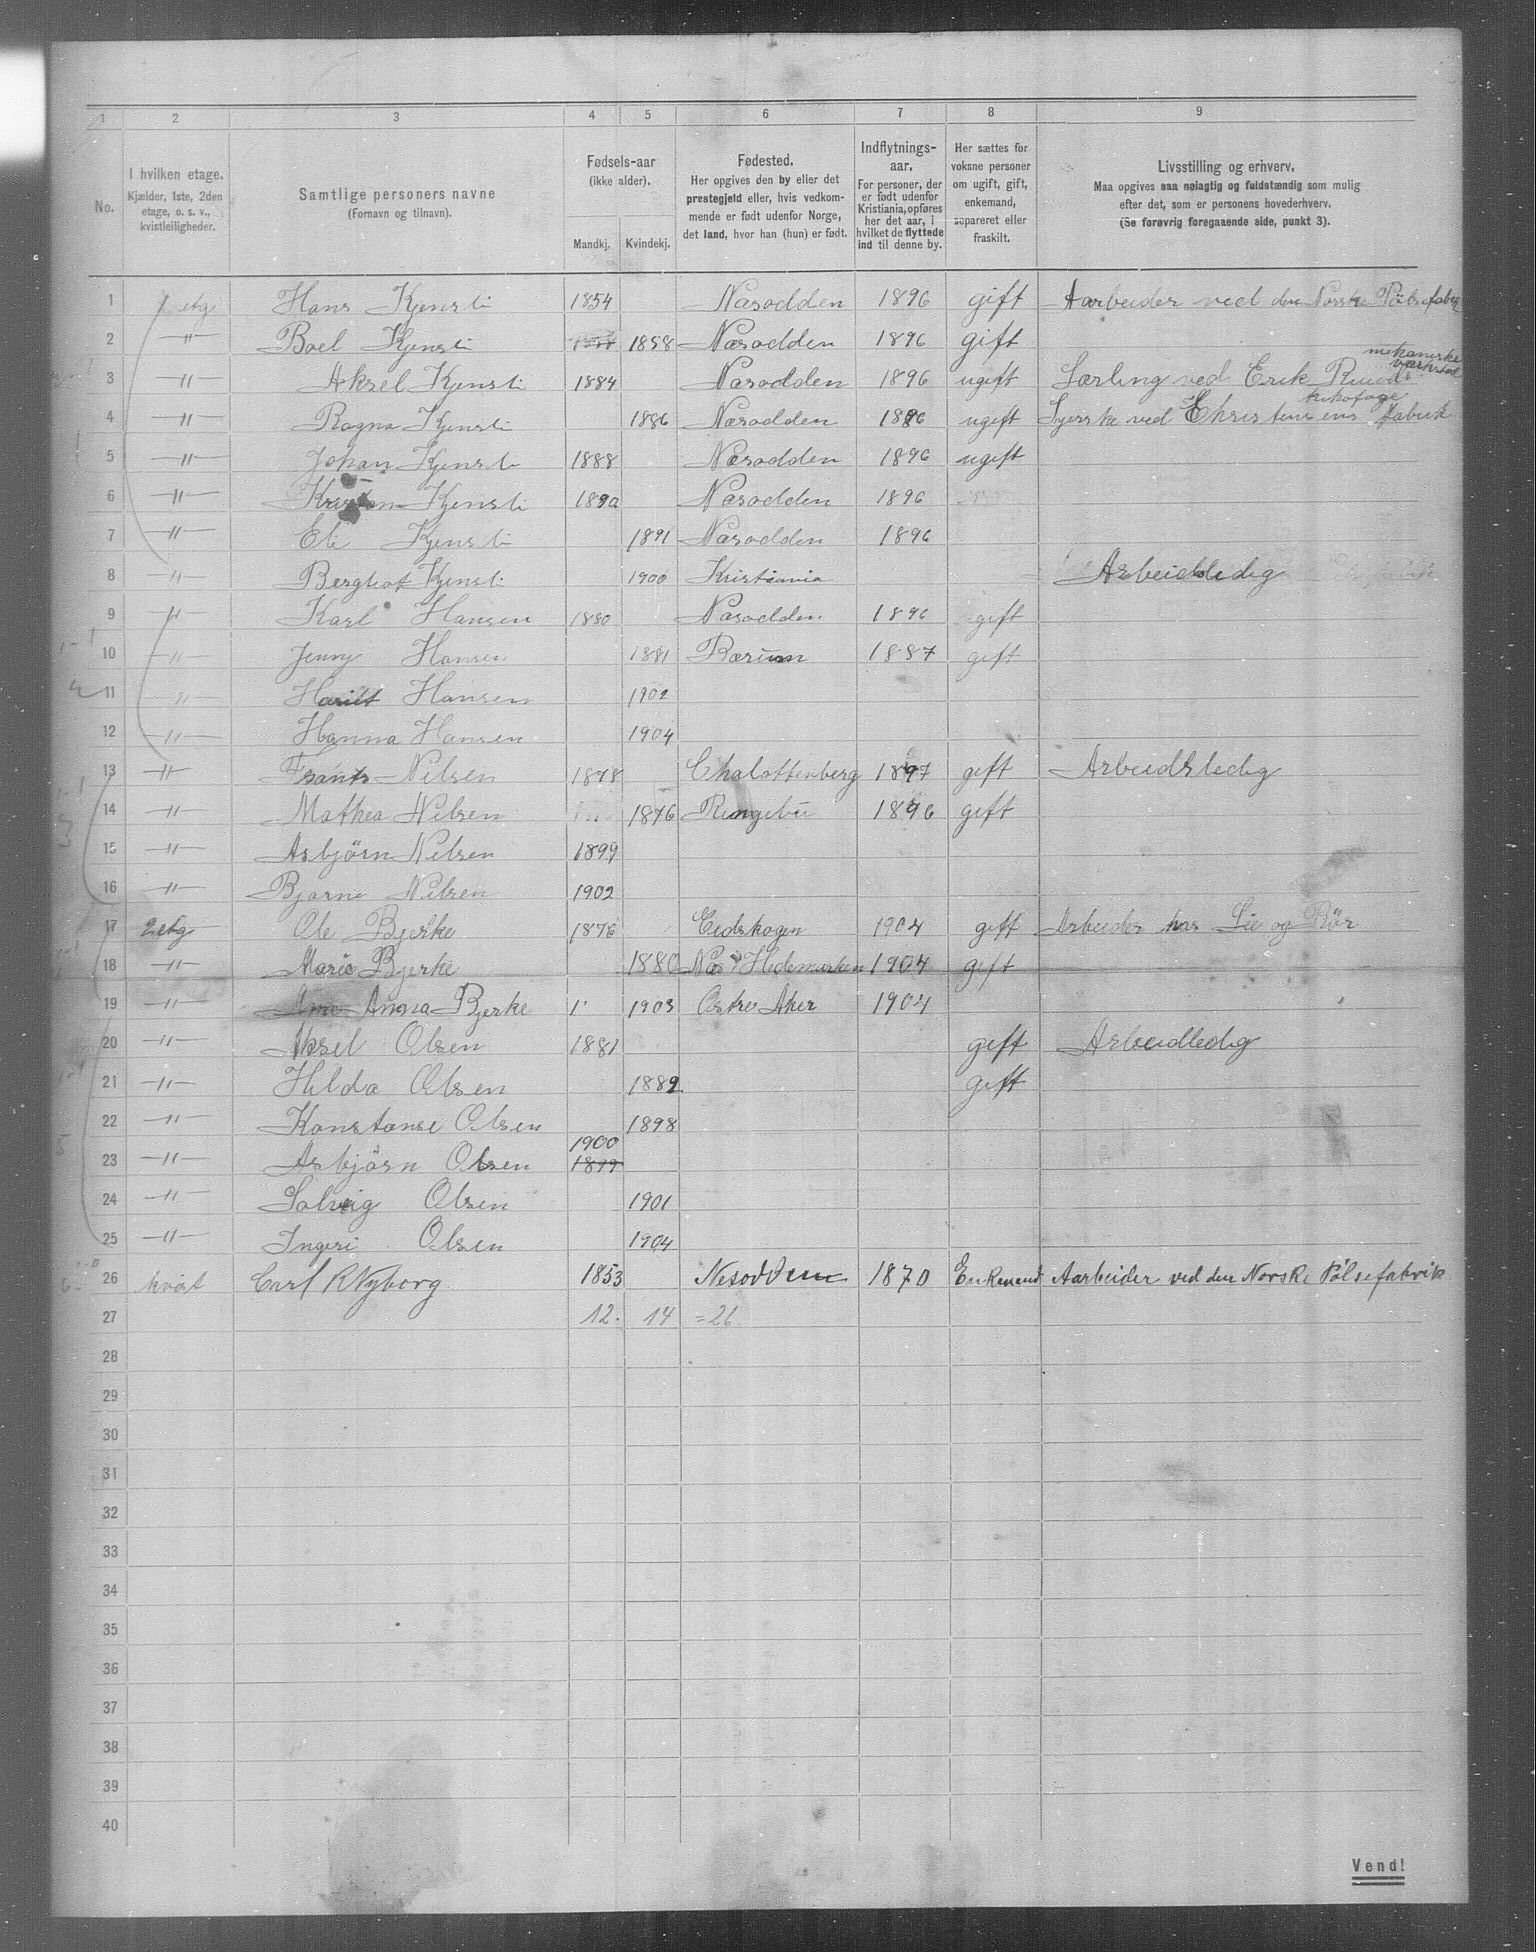 1 2 3 4 5 6 7 8 9
No.
I hvilken etage.
Kjælder, 1ste, 2den
etage, o. s. v.,
kvistleiligheder.
Samtlige personers navne
(Fornavn og tilnavn).
Fødsels-aar
(ikke alder).
Mandkj. Kvindekj.
Fødested.
Her opgives den by eller det
prestegjeld eller, hvis vedkom-
mende er født udenfor Norge,
det land, hvor han (hun) er født.
Indflytnings-
aar.
For personer, der
er født udenfor
Kristiania, opføres
her det aar, i
hvilket de flyttede
ind til denne by.
Her sættes for
voksne personer
om ugift, gift,
enkemand,
separeret eller
fraskilt.
Livsstilling og erhverv.
Maa opgives saa nøiagtig og fuldstændig som mulig
efter det, som er personens hovederhverv.
(Se forøvrig foregaaende side, punkt 3).
1 1 etg Hans Kjensli 1854 Næsodden 1896 gift Aarbeider ved den Norske Pölsefabrik
2 —"— Boel Kjensli 1858 Næsodden 1896 gift
3 —"— Aksel Kjensli 1884 Næsodden 1896 ugift Lærling ved Erik Ruuds mekaniske værksted
4 —"— Ragna Kjensli 1886 Næsodden 1896 ugift Syerske ved Christensens Fabrik
5 —"— Johan Kjensli 1888 Næsodden 1896 ugift
6 —"— Kjensli 1890 Næsodden 1896
7 —"— Eli Kjensli 1891 Næsodden 1896
8 —"— Bergliot Kjensli 1900 Kristiania Arbeidsledig
9 —"— Karl Hansen 1880 Næsodden 1896 gift
10 —"— Jenny Hansen 1881 Bærum 1887 gift
11 —"— Harriet Hansen 1902
12 —"— Hanna Hansen 1904
13 —"— Frants Nilsen 1878 Chalottenberg 1897 gift Arbeidsledig
14 —"— Mathea Nilsen 1876 Ringebu 1896 gift
15 —"— Asbjörn Nilsen 1899
16 —"— Bjarne Nilsen 1902
17 2 etg Ole Bjerke 1876 Eidskogen 1904 gift Arbeider hos Lie og Rör
18 —"— Marie Bjerke 1880 Næs Hedemarken 1904 gift
19 —"— Anna Bjerke 1903 Østre Aker 1904
20 —"— Aksel Olsen 1881 gift Arbeidledig
21 —"— Hilda Olsen 1882 gift
22 —"— Konstanse Olsen 1898
23 —"— Asbjörn Olsen 1900 1899
24 —"— Solveig Olsen 1901
25 —"— Ingeri Olsen 1904
26 kvist Carl R Nyborg 1853 Nesodden 1870 Enkemand Aarbeider ved den Norske Pölsefabrik
27 12. 14 =26.
28
29
30
31
32
33
34
35
36
37
38
39
40
Vend!